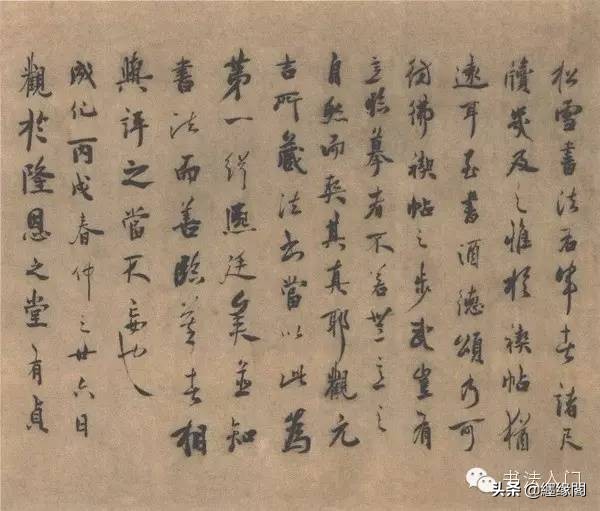 松雪書法右軍者諸尺
牘幾及之惟於禊帖猶
遠耳至書酒德頌乃可
彷彿禊帖之步武豈有
意臨摹者不若無意之
自然而契其真耶觀元
吉所藏法書當以此為
第一 廷美並知
書法而善臨 者相
與評之當不妄也
成化丙戌春仲之廿六日
觀於隆恩之堂 有貞
书法入门
头条 @經缘閣